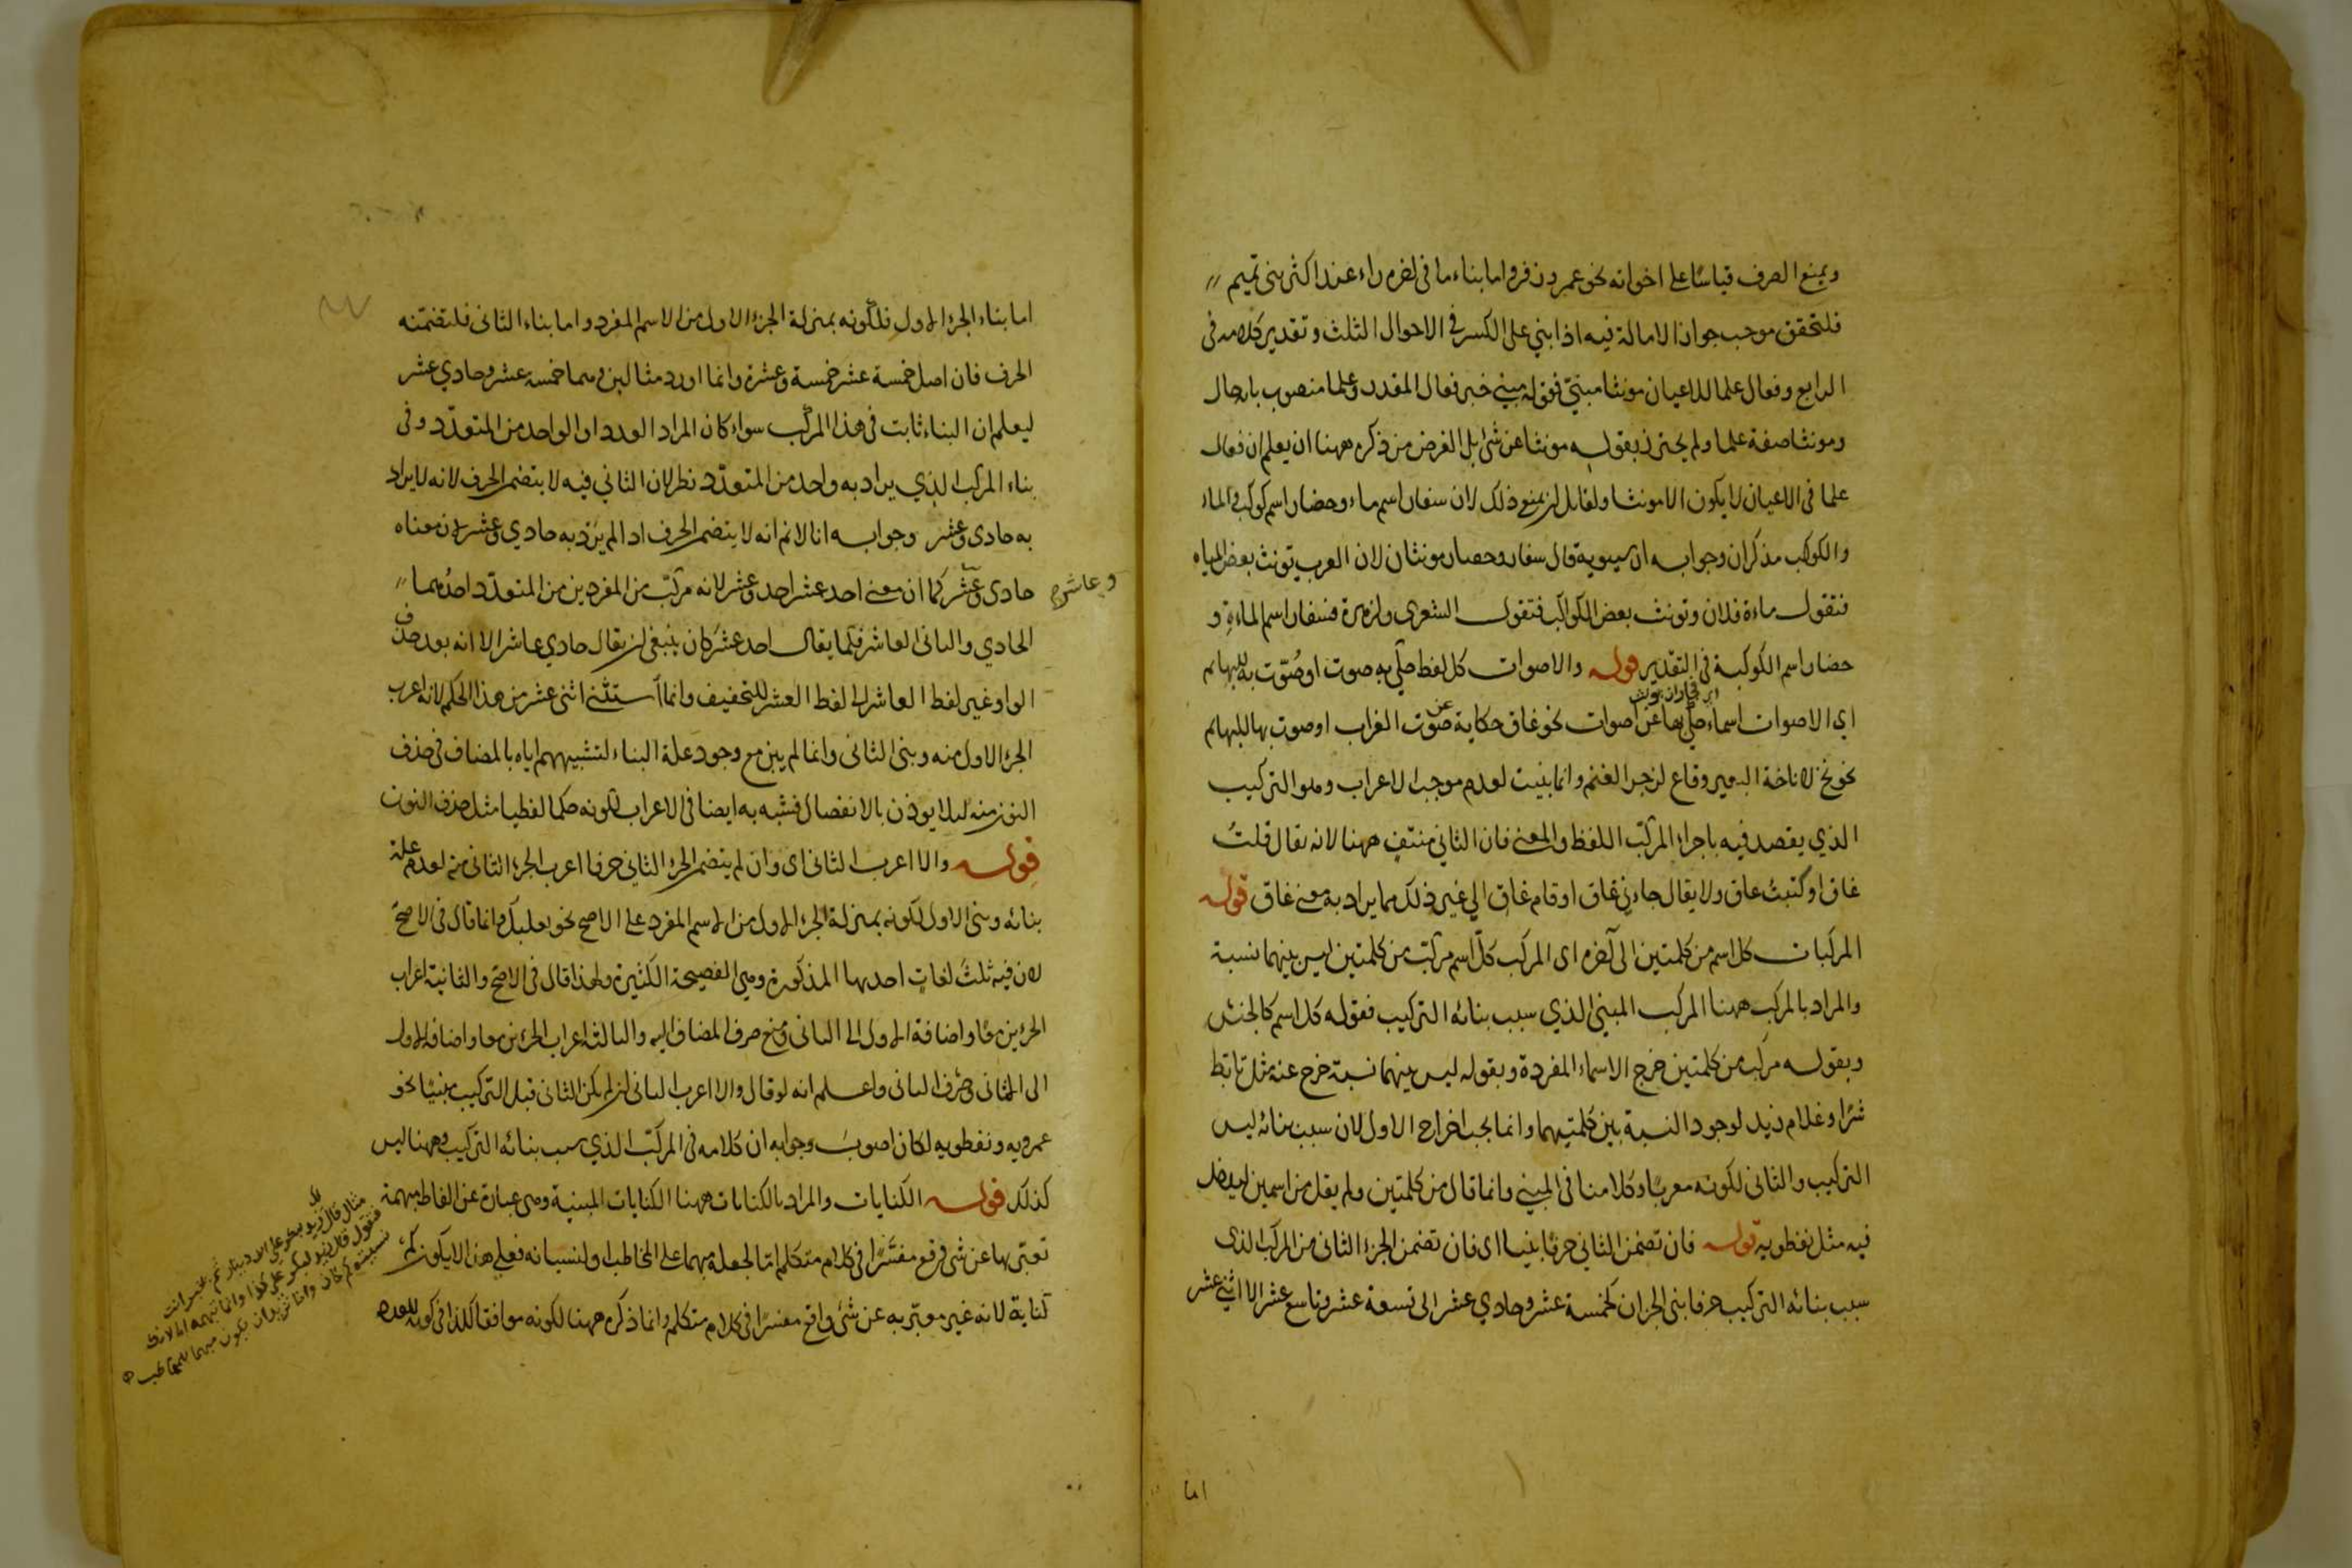 ويمنع الصرف قياسا على اخواته نحو عمر وزفر واما بناء ما في اخره راء عند اكثر بني تميم
فلتحقق موجب جواز الامالة فيه اذا بني على الكسر في الاحوال الثلث وتقدير كلامه في
الرابع وفعال علما للاعيان مونثا مبني فقوله مبني خبر فعال المقدر وعلما منصوب بالحال
ومونثا صفة علما ولم يحترز بقوله مونثا عن شئ بل الغرض من ذكره ههنا ان يعلم ان فعال
علما في الاعيان لا يكون الا مونثا ولقائل ان يمنع ذلك لان سفار اسم ماء وحضار اسم كوكب والماء
والكوكب مذكران وجوابه ان سيبويه قال سفار وحضار مونثان لان العرب تونث بعض المياه
فتقول ماءة فلان وتونث بعض الكواكب فتقول الشعرى والزهرة فسفار اسم الماءة و
حضار اسم الكوكبة في التقدير قوله والاصوات كل لفظ حكي به صوت او صُوّت به للبهائم
اي الاصوات اسماء حكي بها عن اصوات نحو غاق حكاية عن صوت الغراب او صوت بها للبهائم
نحو نخ لاناخة البعير وقاع لزجر الغنم وانما بنيت لعدم موجب الاعراب وهو التركيب
الذي يقصد فيه باجراء المركب اللفظ والمعنى فان الثاني منتف ههنا لانه يقال قلتُ
غاق او كتبت غاق ولا يقال جاءني غاق او قام غاق الى غير ذلك مما يراد به معنى غاق قوله
المركبات كل اسم من كلمتين الى آخره اى المركب كل اسم مركب من كلمتين ليس بينهما نسبة
والمراد بالمركب ههنا المركب المبني الذي سبب بنائه التركيب فقوله كل اسم كالجنس
وبقوله مركب من كلمتين خرج الاسماء المفردة وبقوله ليس بينهما نسبة خرج عنه مثل تابط
شرّا وغلام زيد لوجود النسبة بين كلمتيهما وانما يجب اخراج الاول لان سبب بنائه ليس
التركيب والثاني لكونه معربًا وكلامنا في المبني وانما قال من كلمتين ولم يقل من اسمين ليدخل
فيه مثل نفطويه قوله فان تضمن الثاني حرفا بنيا اى فان تضمن الجزء الثاني من المركب الذى
سبب بنائه التركيب حرفا بني الجزان كخمسة عشر وحادي عشر الى تسعة عشر وتاسع عشر الا اثني عشر
اما
اما بناء الجزء الاول فلكونه بمنزلة الجزء الاول من الاسم المفرد واما بناء الثاني فلتضمنه
الحرف فان اصل خمسة عشر خمسة وعشرة وانما اورد مثالين وهما خمسة عشر وحادي عشر
ليعلم ان البناء ثابت في هذا المركب سواء كان المراد العدد او الواحد من المتعدّد وفي
بناء المركب الذي يراد به واحد من المتعدّد نظر لان الثاني فيه لا يتضمن الحرف لانه لا يراد
به حادى وعشر وجوابه انا لا نم انه لا يتضمن الحرف اذ المراد به حادي وعشر لان معناه
حادى وعشر كما ان معنى احد عشر احد وعشر لانه مركب من المفردين من المتعدّد احدهما
وعاشر
الحادي والثاني العاشر فكما يقال احد عشر كان ينبغي ان يقال حادي عاشر الا انه بعد حذف
الواو غير لفظ العاشر الى لفظ العشر للتخفيف وانما استثنى اثني عشر من هذا الحكم لانه اعرب
الجزء الاول منه وبني الثاني وانما لم يبن مع وجود علة البناء لتشبيههم اياه بالمضاف في حذف
النون منه لئلا يوذن بالانفصال فشبه به ايضا في الاعراب لكونه حكما لفظيا مثل حذف النون
قوله والا اعرب الثاني اى وان لم يتضمن الجزء الثاني حرفا اعرب الجزء الثاني منه لعدم علة
بنائه وبني الاول لكونه بمنزلة الجزء الاول من الاسم المفرد على الاصح نحو بعلبك وانما قال في الاصح
لان فيه ثلث لغات احدها المذكورة وهي الفصيحة الكثيرة ولهذا قال في الاصح والثانية اعراب
الجزءين معًا واضافة الاول الى الثاني ومنع صرف المضاف اليه والثالثة اعراب الجزئين معا واضافة الاول
الى الثاني وصرف الثاني واعلم انه لو قال والا اعرب الثاني ان لم يكن الثاني قبل التركيب مبنيًا نحو
عمرويه ونفطويه لكان اصوب وجوابه ان كلامه في المركب الذي سبب بنائه التركيب وههنا ليس
كذلك قوله الكنايات والمراد بالكنايات ههنا الكنايات المبنية وهي عبارة عن الفاظ مبهمة
تعبّر بها عن شئ وقع مفسّرًا في كلام متكلم امّا لجعله مبهما على المخاطب او لنسيانه فعلى هذا لا يكون كم
كناية لانه غير معبّر به عن شئ واقع مفسّرًا في كلام متكلم وانما ذكره ههنا لكونه موافقا لكذا في كونه للعدد